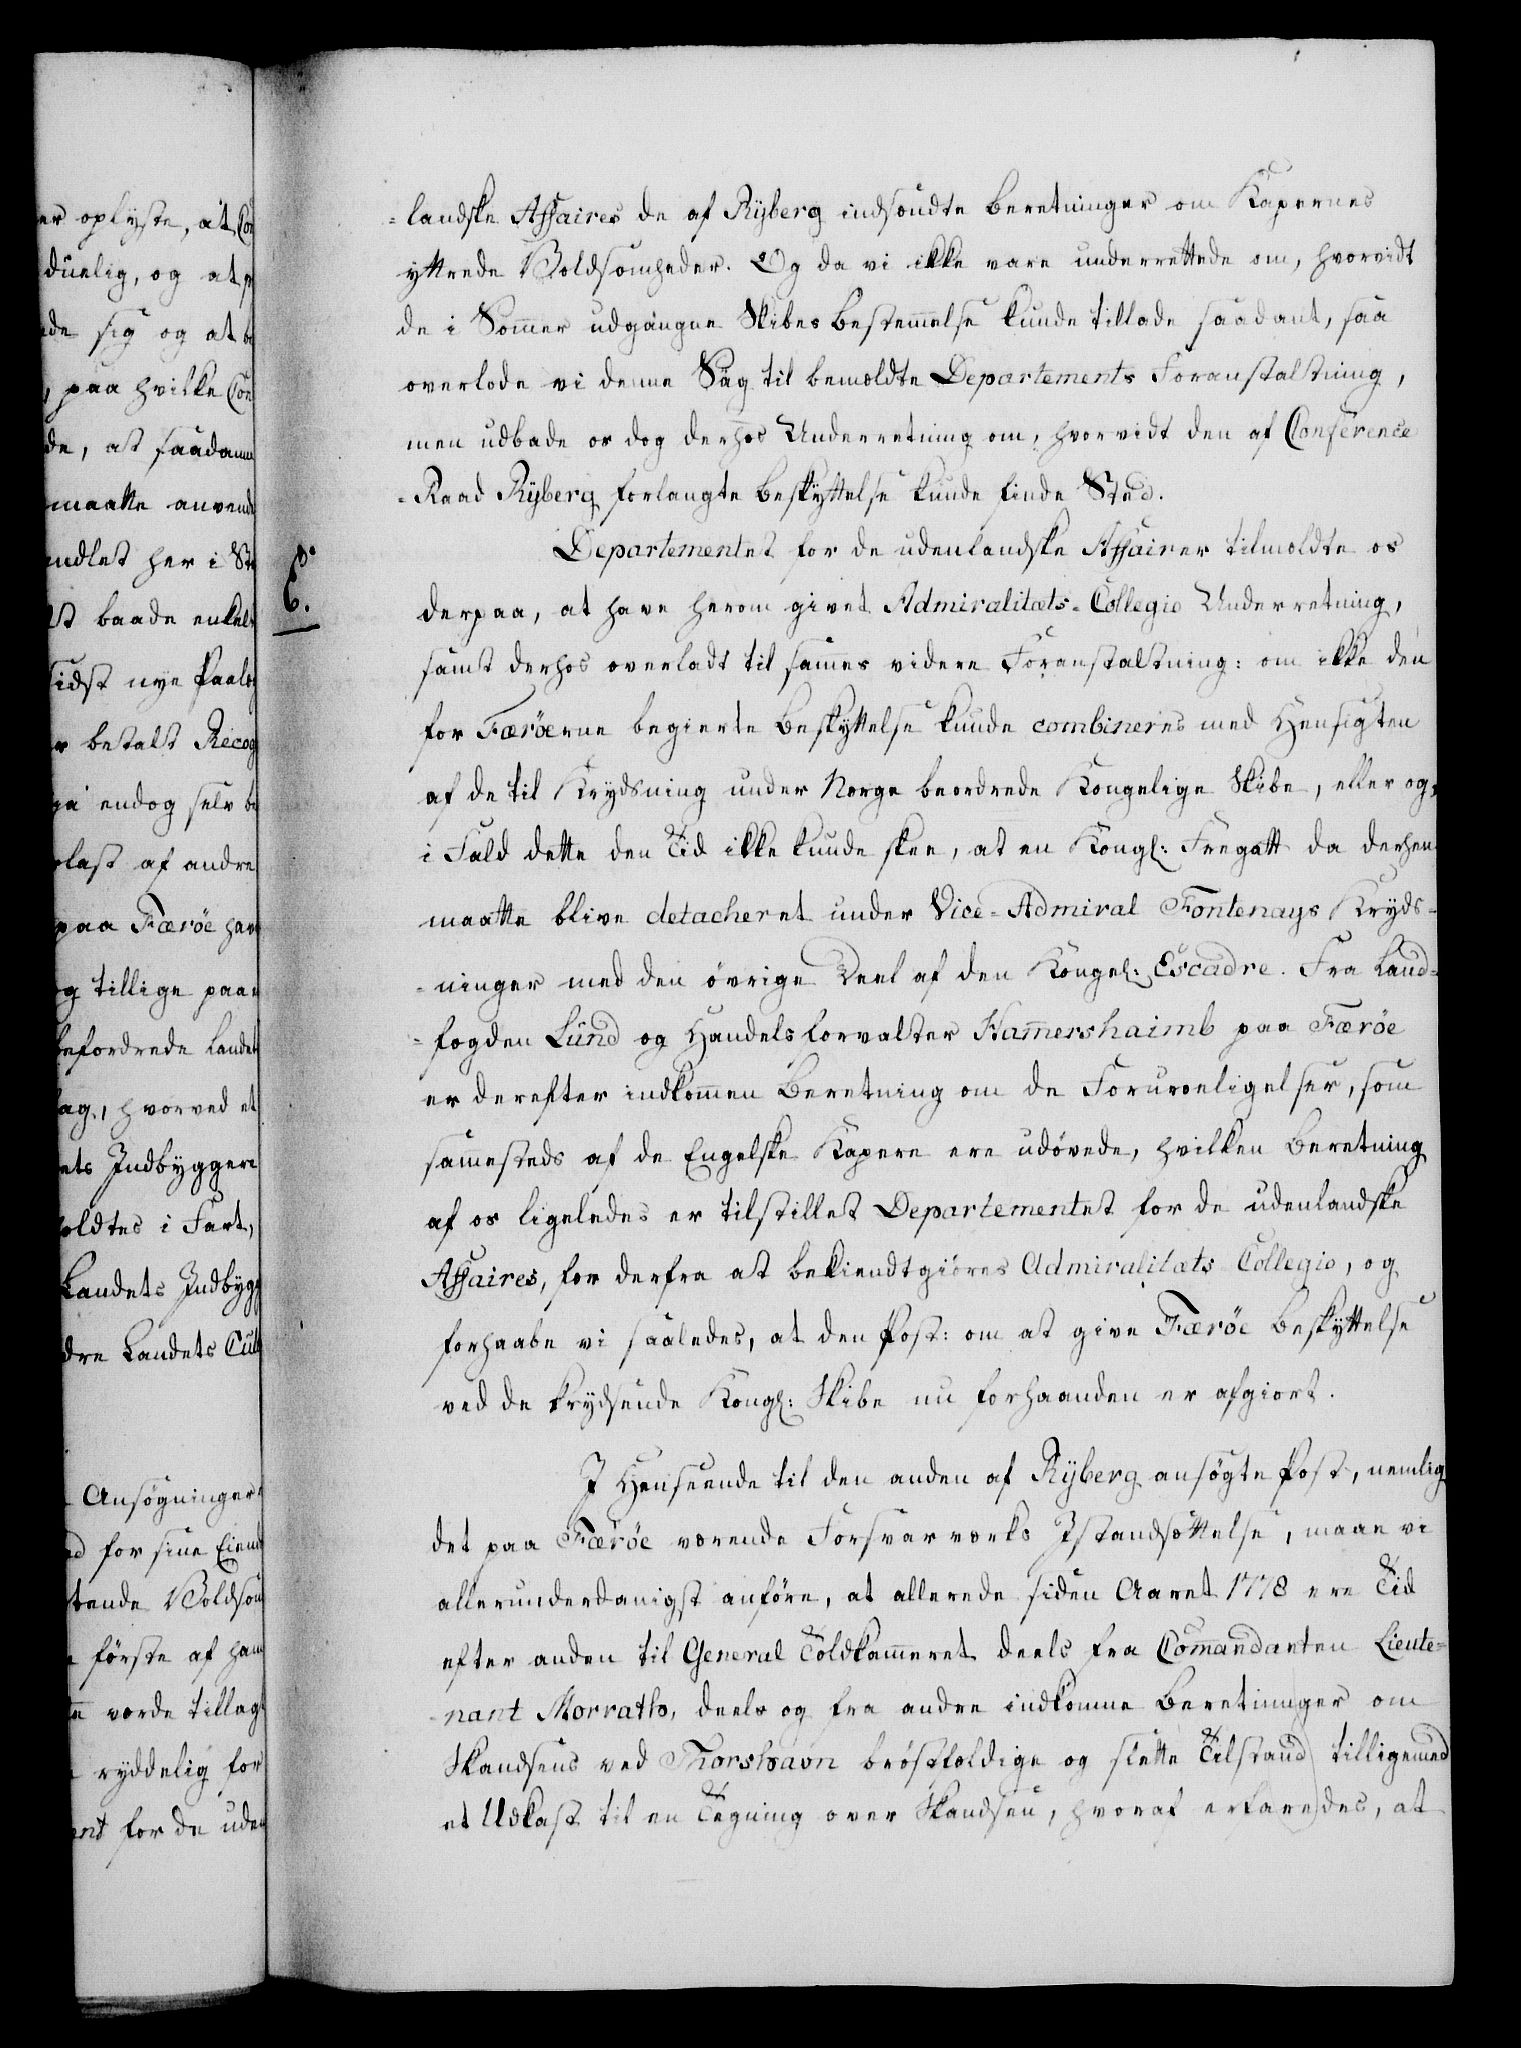 er oplyste, at Con
duelig, og at
de sig og at
paa hvilke Con
de, at saadann
maatte anvend
ndlet her i St
st baade enkel
sidst nye Paal
r betalt Recog
endog selv be
last af andre
paa Færöe hav
og tillige paa
befordrede Landet
ag, hvorved et
ets Indbyggere
oldtes i Fart,
Landets Indbyg
dre Landets Cul
Ansøgninger
d for sine Eien
tende Voldsom
første af ham
vorde tillag
ryddelig for
ent for de uden
=landske Affaires de af Ryberg indsendte Beretninger om Kapernes
yttrede Voldsomheder. Og da vi ikke vare underrettede om, hvorvidt
de i Sommer udgangne Skibes Bestemmelse kunde tillade saadant, saa
overlode vi denne Sag til bemeldte Departements Foranstaltning,
men udbade os dog derhos Underretning om, hvorvidt den af Conference
=Raad Ryberg forlangte Beskyttelse kunde finde Sted.
Departementet for de udenlandske Affairer tilmeldte os
6.
derpaa, at have herom givet Admiralitets-Collegio Underretning,
samt derhos overladt til sammes videre Foranstaltning: om ikke den
for Færöerne begierte Beskyttelse kunde combineres med Hensigten
af de til Krydsning under Norge beordrede Kongelige Skibe, eller og,
i Fald dette den Tid ikke kunde skee, at en Kongl: Fregatt da derhen
maatte blive detacheret under Vice-Admiral Fontenays Kryds=
=ninger med den øvrige Deel af den Kongel: Escadre. Fra Land=
=fogden Lund og Handelsforvalter Hammershaimb paa Færöe
er derefter indkommen Beretning om de Foruroeligelser, som
sammesteds af de Engelske Kapere ere udøvede, hvilken Beretning
af os ligeledes er tilstillet Departementet for de udenlandske
Affaires, for derfra at bekiendtgiøres Admiralitets Collegio, og
forhaabe vi saaledes, at den Post: om at give Færöe Beskyttelse
ved de krydsende Kongl: Skibe nu forhaanden er afgiort.
I Henseende til den anden af Ryberg ansøgte Post, nemlig
det paa Færöe værende Forsvarværks Istandsættelse, maae vi
allerunderdanigst anføre, at allerede siden Aaret 1778 ere Tid
efter anden til General Toldkammeret deels fra Commandanten Lieute=
nant Morrath, deels og fra andre indkomne Beretninger om
Skandsens ved Thorshavn brøstfoldige og slette Tilstand tilligemed
et Udkast til en Tegning over Skandsen, hvoraf erfaredes, at